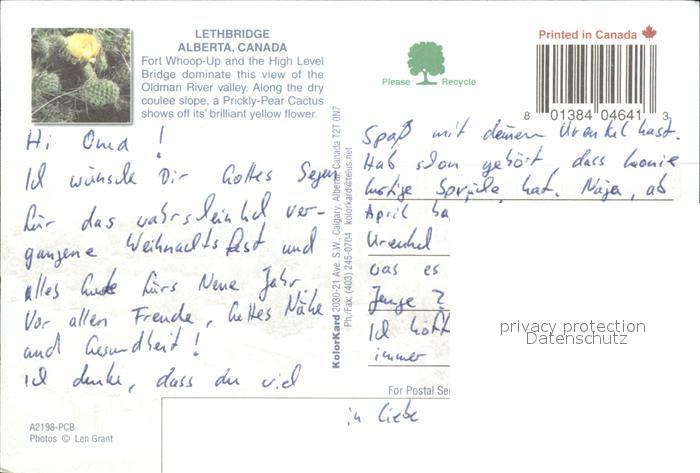 LETHBRIDGE
ALBERTA, CANADA
Fort Whoop-Up and the High Level
Bridge dominate this view of the
Oldman River valley. Along the dry
coulee slope, a Prickly-Pear Cactus
shows off its' brilliant yellow flower.
Please Recycle
Printed in Canada
8 01384 04641 3
Hi Oma !
Ich wünsche Dir Gottes Segen
für das wahrscheinlich ver-
gangene Weihnachtsfest und
alles Gute fürs Neue Jahr.
Vor allen Freude, Gottes Nähe
und Gesundheit !
Ich denke, dass du viel
A2198-PCB
Photos © Len Grant
KolorKard 2030-21 Ave. S.W., Calgary, Alberta, Canada T2T 0N7
Ph./Fax: (403) 245-0704 kolorkard@telus.net
Spaß mit deinem Urenkel hast.
Hab schon gehört dass
lustige Sprüche hat. ab
April
Urenkel
was es
Junge ?
Ich hoff
immer
For Postal Se
in Liebe
privacy protection
Datenschutz